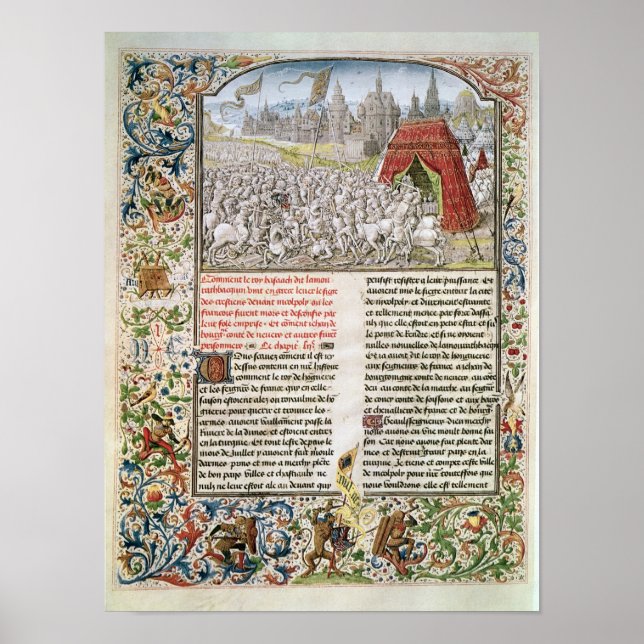 Comment le roy basaach dit lamou
rathbaquin vint en grece lever le siege
des crestiens devant nicolpoly ou les
francois furent mors et desconfis par
leur fole emprise et comment jehan de
bourgoingne conte de nevers et autres furent
prisonniers Le chapitre
Vous scavez comment il est icy
dessus contenu en nostre histoire
comment le roy de honguerie
et les seigneurs de france qui en celle
saison estoient alez ou royaulme de hon
guerie pour querir et trouver les
armes avoient vaillaument passe la
riviere de la dunoe et estoient entrez
en la turquie et tout leste depuis le
mois de Juillet y avoient fait moult
darmes prins et mis a mercy plente
de bon pays villes et chasteaulx ne
nulz ne leur estoit ale au devant qui
peuussent resister a leur puissance et
avoient mis le siege entour la cite
de nicolpoly et durement estrainte
et tellement menee par force dassaulx
quelle estoit en petit estat et sur
le point de rendre et si ne avoient
nulles nouvelles de lamourathbaquin
et avoit dit le roy de honguerie
aux seigneurs de france a jehan de
bourgoingne conte de nevers au conte
deu au conte de la marche au seigneur
de coucy conte de soissons et aux barons
et chevaliers de france et de bourgoingne
Beaulx seigneurs dieu mercy
nous avons eu une moult bonne sai
son Car nous avons fait plente dar
mes et destruit grant pays en la
turquie Je tiens et compte ceste ville
de nicolpoly pour nostre toutesfois que
nous vouldrons elle est tellement